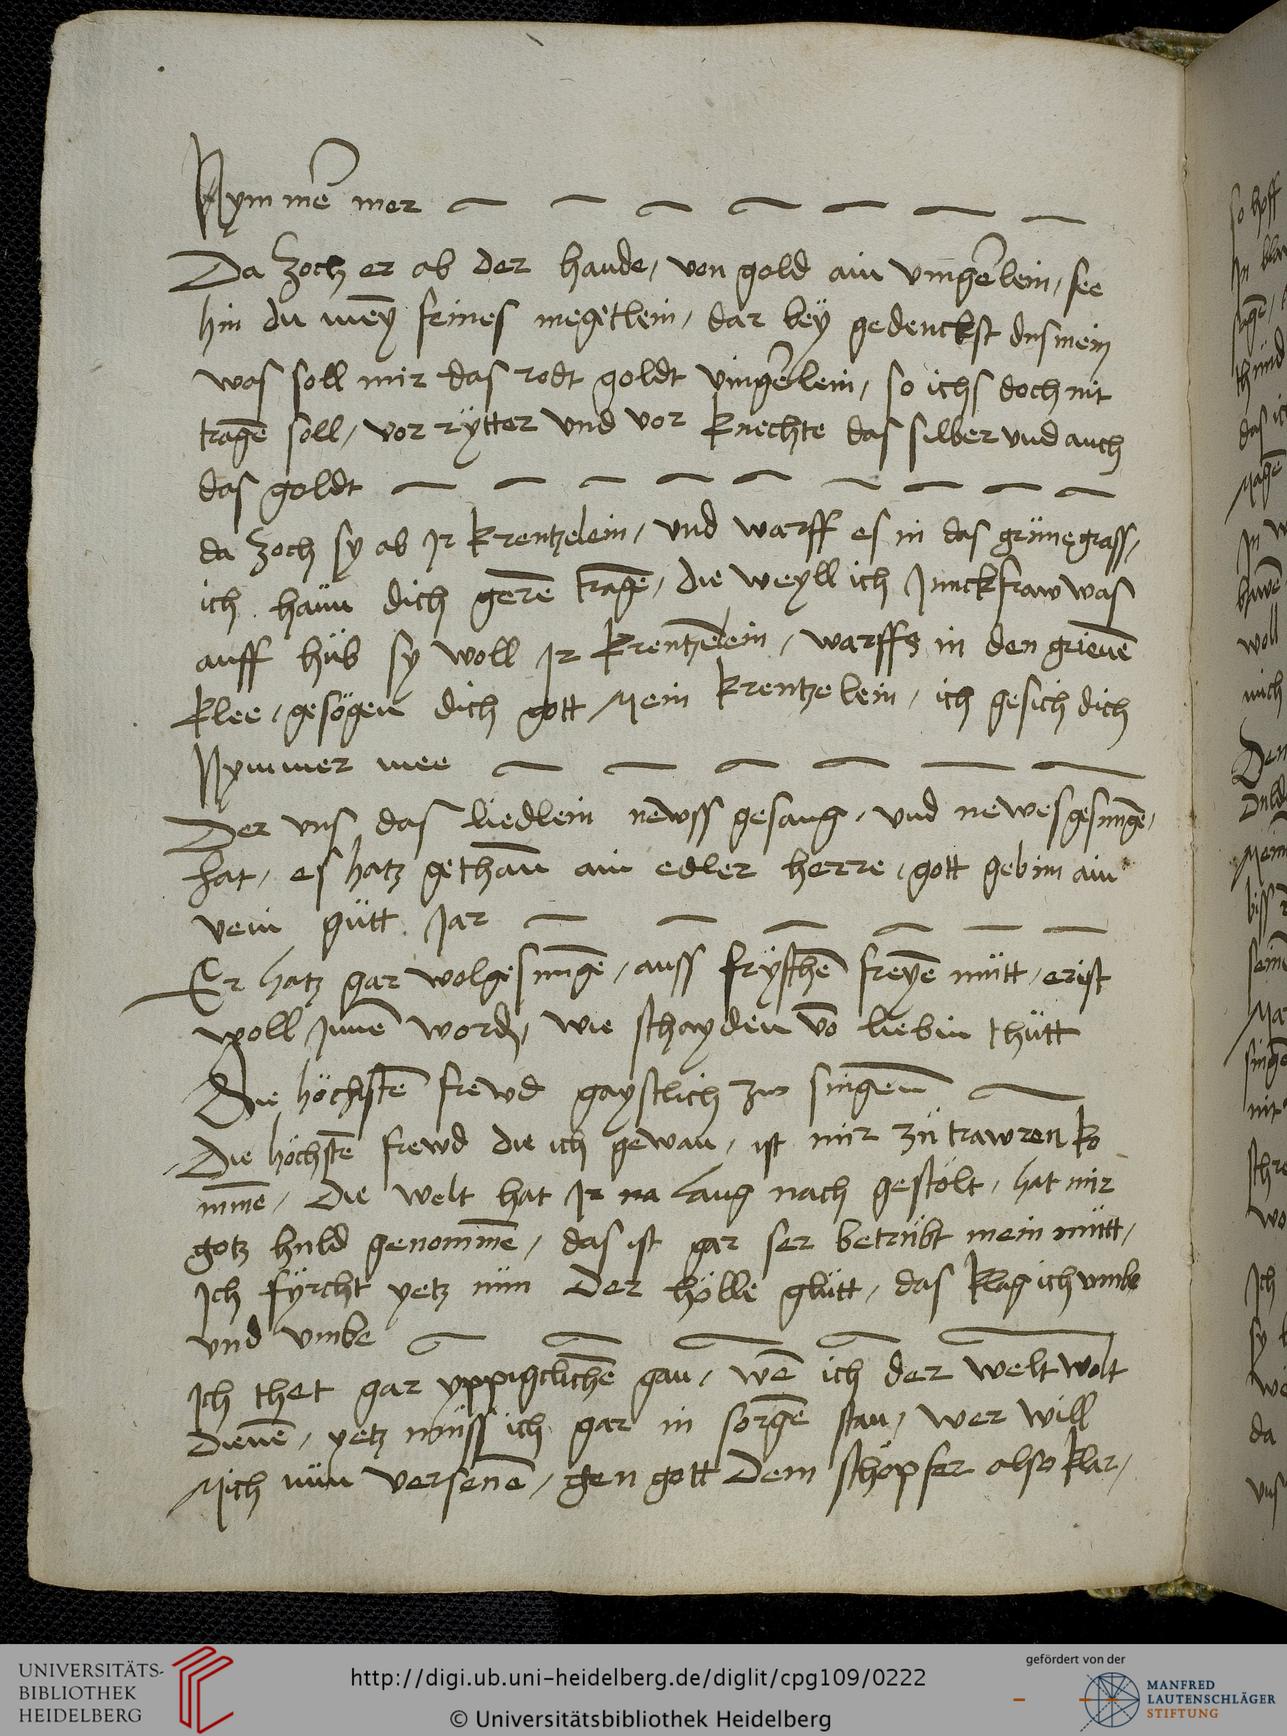 Nymmē mer
Da zoch er ab der hande / von gold ain vingerlein / see
hin du mey feines megetlein / dar bey gedenckst du mein
was soll mir das rodt goldt vingerlein / so ichs doch nit
tragē soll / vor rÿtter vnd vor knechte das silber vnd auch
das goldt
da zoch sy ab Ir krentzelein / vnd warff es in das grüne grass /
ich haun dich gerē tragē / die weyll ich Junckfraw was
auff hüb sy woll Ir krentzelein / warffs in den grienē
klee / gesögen dich gott Mein krentzelein / ich gesich dich
Nymmer mee
Der vns das liedlein newss gesang / vnd newes gesungē /
hat / es hatz gethan ain edler herre / gott geb im ain
vein gütt Jar
Er hatz gar wolgesungē / auss fryschē freyē mütt / er ist
woll Innē word / wie schayden vō liebin thütt
Die höchstē frewd gaystlich zu singen
Die höchstē frewd die ich gewan / ist mir zü trawren ko
mmē / Die welt hat Ir na lang nach gestölt / hat mir
gotz huld genommē / das ist gar ser betrübt mein mütt /
Ich fÿrcht yetz nün der hölle glütt / das klag ich vmbe
vnd vmbe
Ich thet gar yppigclichē gan / wē ich der welt wolt
dienē / yetz müss ich gar in sorgē stan / wer will
Mich nün versenē / gen gott Dem schöpfer also klar /
so hoff
In
das ich
woll
mich
Den
biss
singē
mir
wo
Ich
da
vns
UNIVERSITÄTS-
BIBLIOTHEK
HEIDELBERG
http://digi.ub.uni-heidelberg.de/diglit/cpg109/0222
© Universitätsbibliothek Heidelberg
gefördert von der
MANFRED
LAUTENSCHLÄGER
STIFTUNG